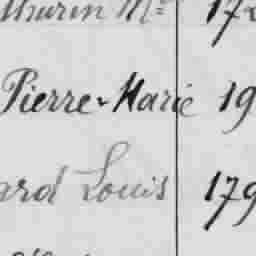 thurin Mie 17
Pierre-Marie 19
ard Louis 179